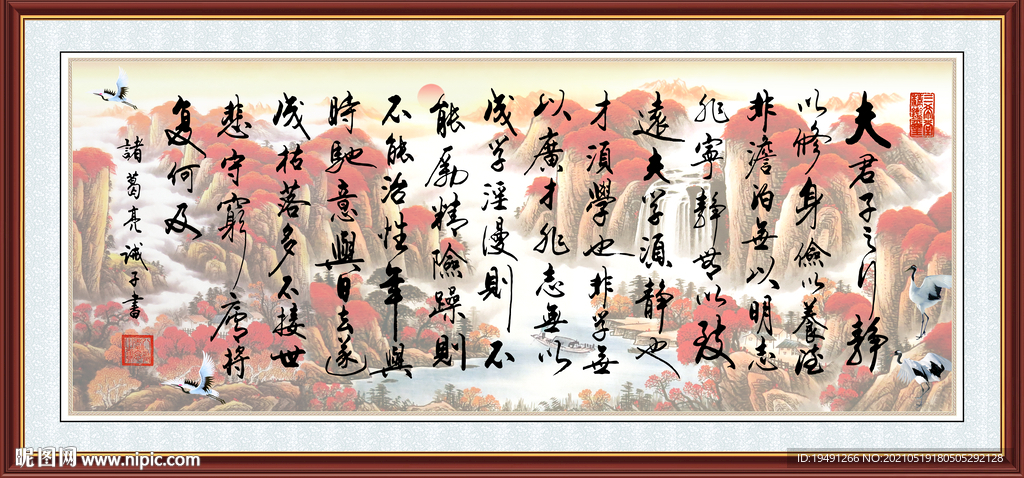 夫君子之行靜
以修身儉以養德
非澹泊無以明志
非寧靜無以致
遠夫学須靜也
才須學也非学無
以廣才非志無以
成学淫漫則不
能勵精險躁則
不能治性年與
時馳意與日去遂
成枯落多不接世
悲守窮廬將
复何及
諸葛亮誡子書
昵图网 www.nipic.com
ID:19491266 NO:20210519180505292128